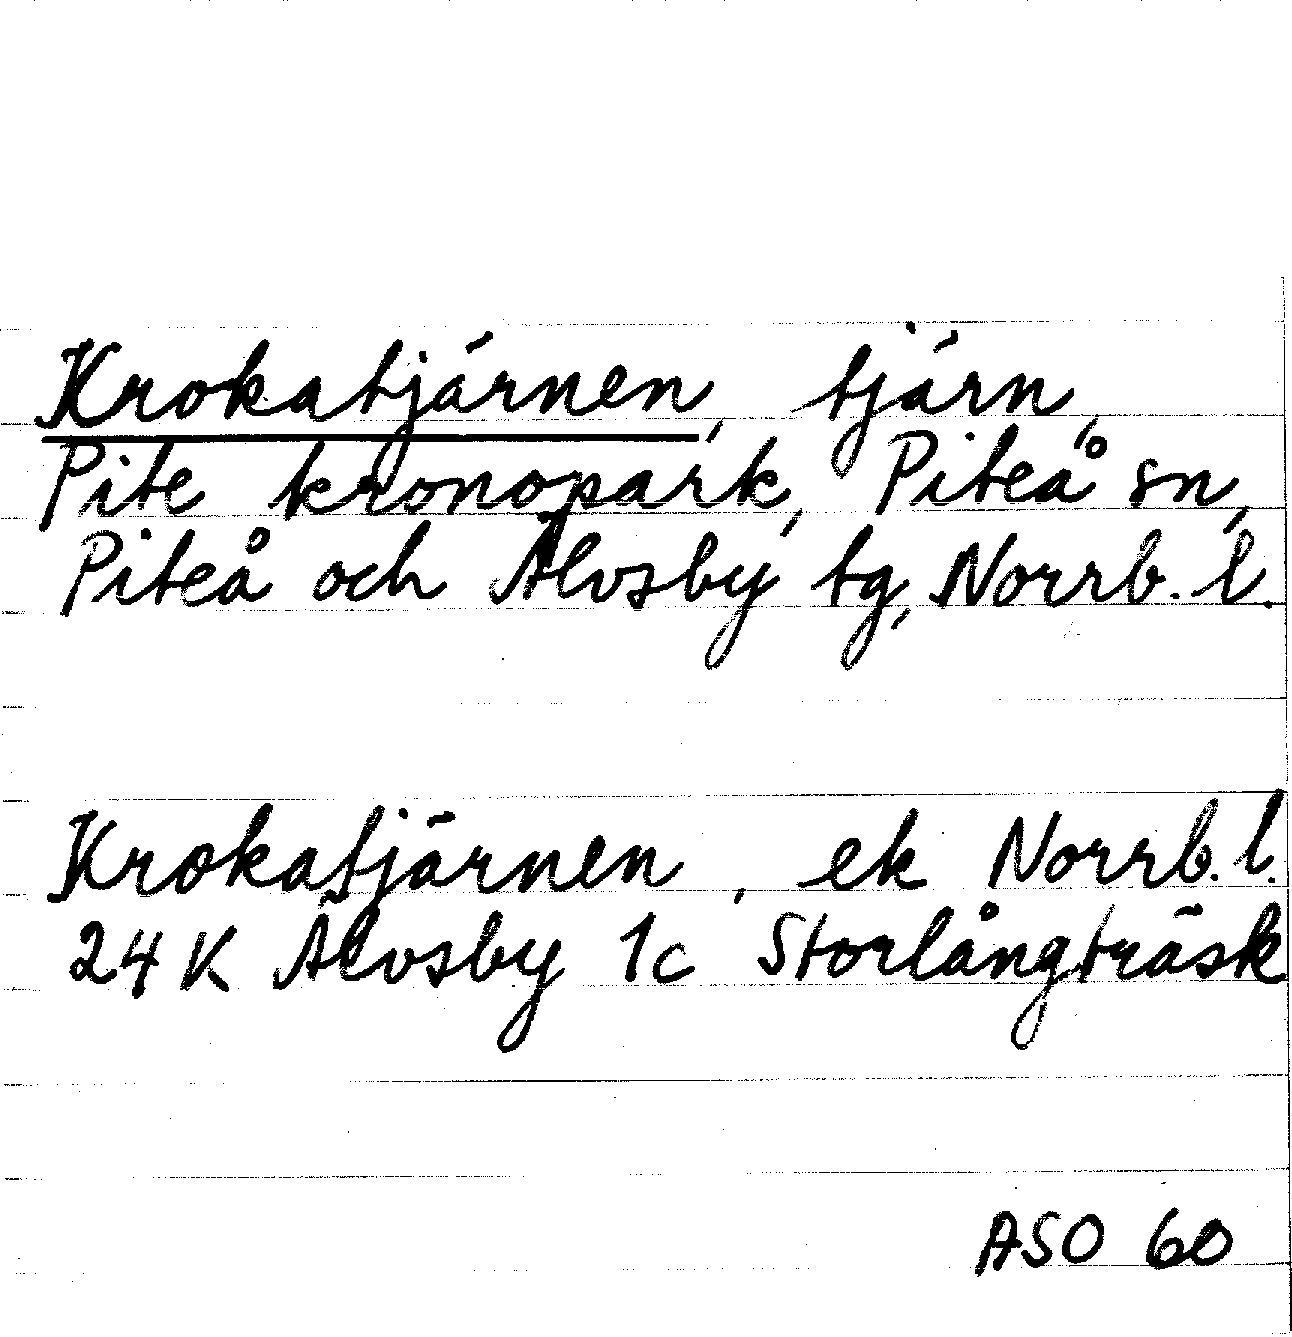 Krokatjärnen, tjärn,
Pite kronopark, Piteå sn,
Piteå och Älvsby tg, Norrb. l.
Krokatjärnen, ek Norrb. l.
24 K Älvsby 1c Storlångträsk
ASO 60